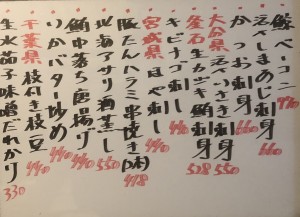 鯨ベーコン 770
えべしまあじ刺身 660
かつお刺身 660
大分県 えべいさき刺身 550
釜石生カツオ 鮫刺身 528
キビナゴ刺し 440
宮城県 ほや刺し
豚たんハラミ串焼き(2本) 478
北海アサリ酒蒸し 550
鮪中落ち唐揚げ 440
いかバター炒め 440
千葉県 枝付き枝豆 440
生水茄子味噌だれかり 330